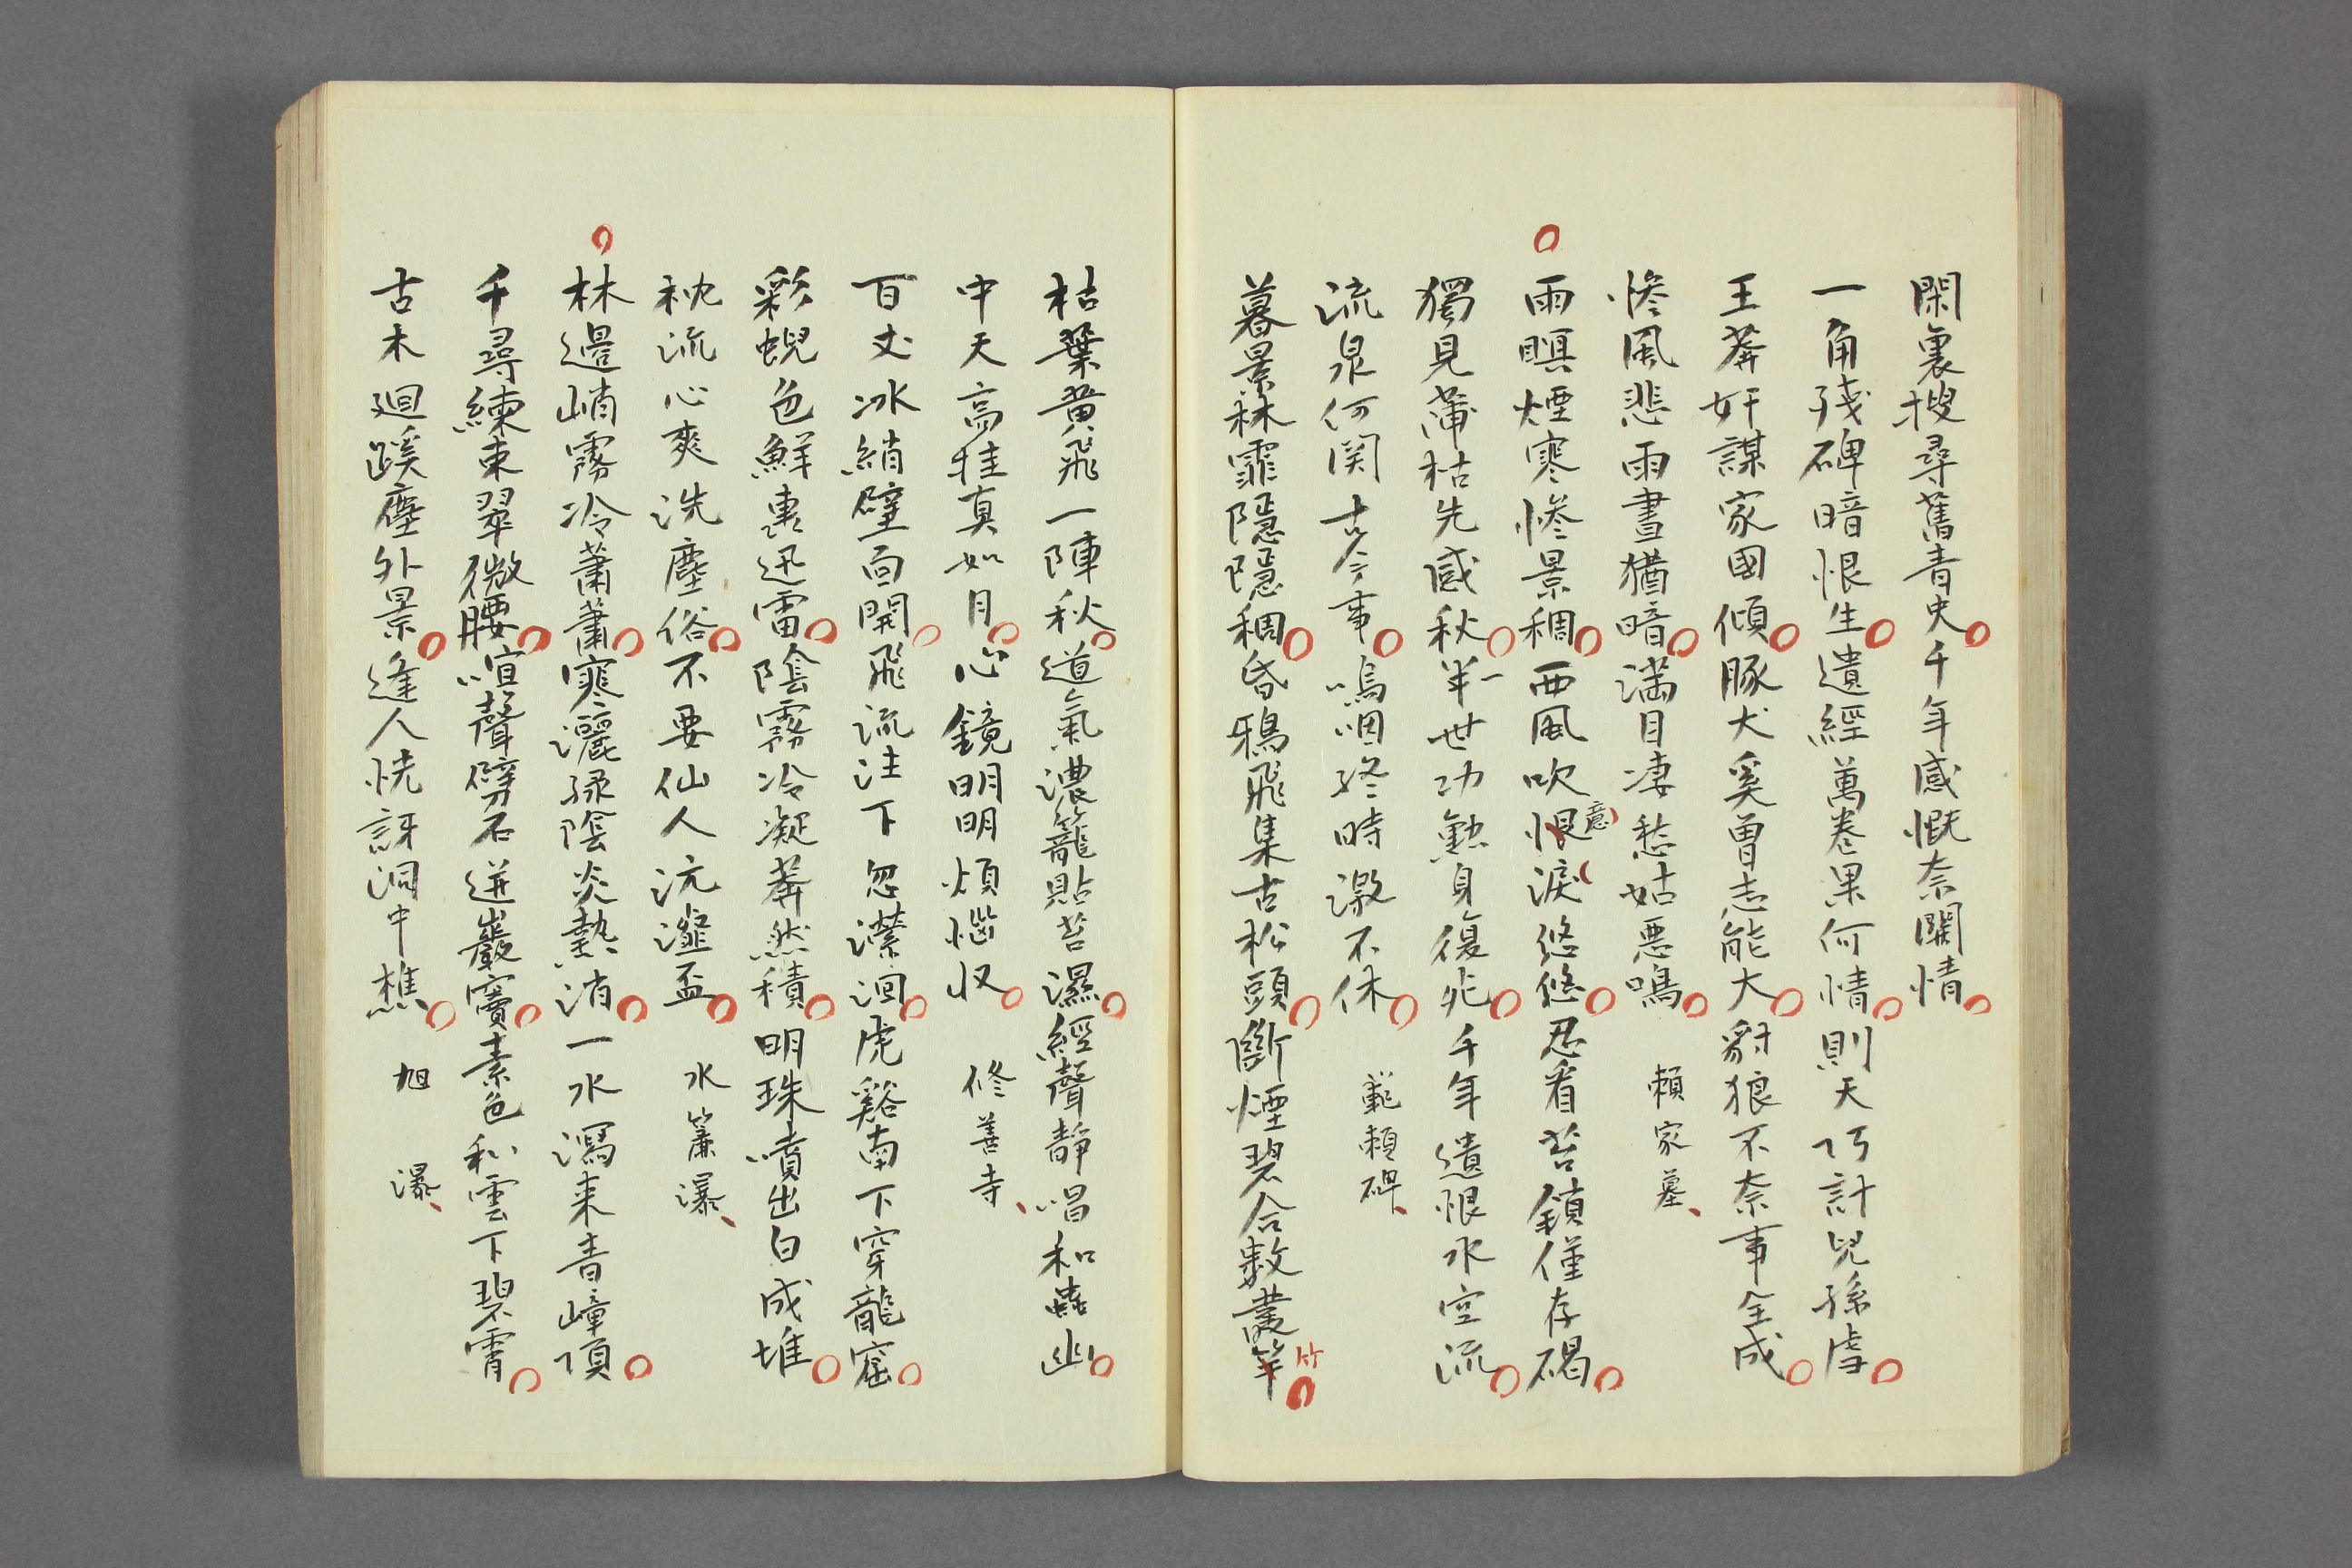 閑裏搜尋舊青史千年感慨奈關情
一角殘碑暗恨生遺經萬卷果何情則天巧計兒孫虐
王莽奸謀家國傾豚犬奚曾志能大豺狼不奈事全成
慘風悲雨晝猶暗滿目凄愁姑惡鳴 賴家墓
雨暝煙寒慘景稠西風吹恨淚悠悠忍看苔鎖僅存碣
意
獨見蒲枯先感秋半世功勲身復非千年遺恨水空流
流泉何関古今事嗚咽終時激不休 範賴碑
暮景林霏隱隱稠昏鴉飛集古松頭斷煙碧合數叢竿
竹
枯葉黄飛一陣秋道氣濃籠貼苔濕經聲靜唱和蛩幽
中天高挂真如月心鏡明明煩惱収 修善寺
百丈冰綃壁面開飛流注下忽瀠洄虎谿南下穿龍窟
彩蜺色鮮轟迅雷陰霧冷凝莽然積明珠噴出白成堆
枕流心爽洗塵俗不要仙人沆瀣盃 水簾瀑
林邊峭霧冷蕭蕭寒灑緑陰炎熱消一水瀉来青嶂頂
千尋練束翠微腰喧聲劈石迸巖竇素色和雲下碧霄
古木廻蹊塵外景逢人恍訝洞中樵 旭瀑